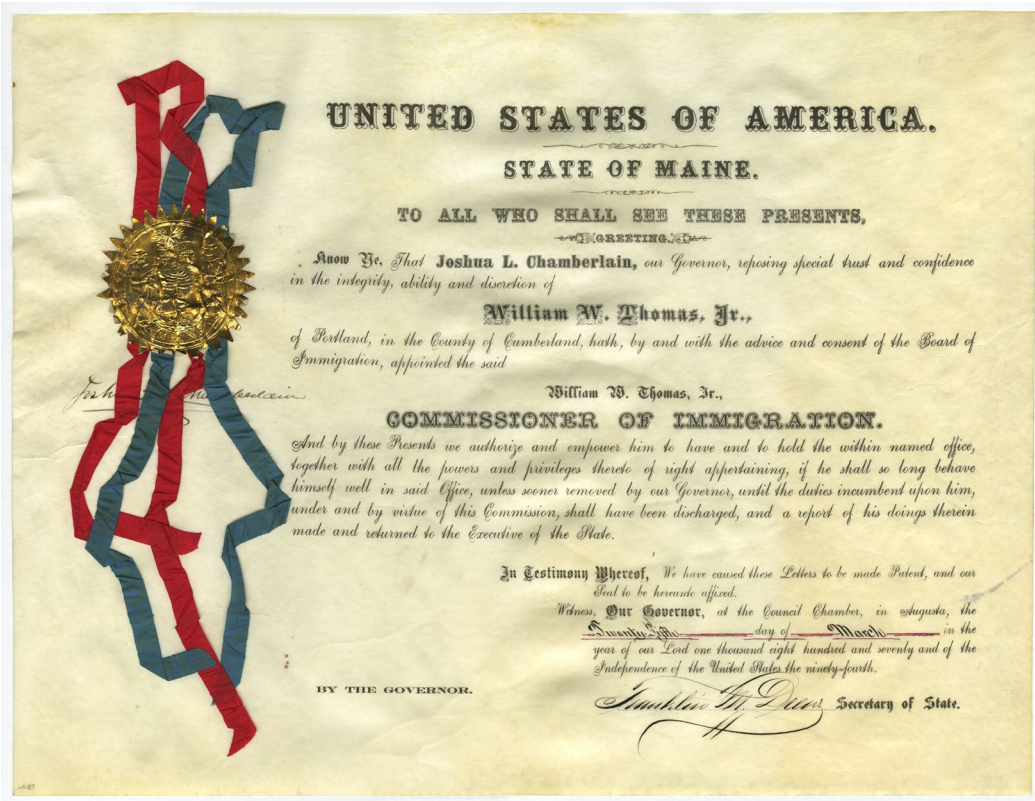 UNITED STATES OF AMERICA.
STATE OF MAINE.
TO ALL WHO SHALL SEE THESE PRESENTS,
GREETING.
Know Ye, That Joshua L. Chamberlain, our Governor, reposing special trust and confidence
in the integrity, ability and discretion of
William W. Thomas, Jr.,
of Portland, in the County of Cumberland, hath, by and with the advice and consent of the Board of
Immigration, appointed the said
William W. Thomas, Jr.,
COMMISSIONER OF IMMIGRATION.
And by these Presents we authorize and empower him to have and to hold the within named office,
together with all the powers and privileges thereto of right appertaining, if he shall so long behave
himself well in said Office, unless sooner removed by our Governor, until the duties incumbent upon him,
under and by virtue of this Commission, shall have been discharged, and a report of his doings therein
made and returned to the Executive of the State.
In Testimony Whereof, We have caused these Letters to be made Patent, and our
Seal to be hereunto affixed.
Witness, Our Governor, at the Council Chamber, in Augusta, the
Twenty Fifth day of March in the
year of our Lord one thousand eight hundred and seventy and of the
Independence of the United States the ninety-fourth.
BY THE GOVERNOR.
Franklin M. Drew Secretary of State.